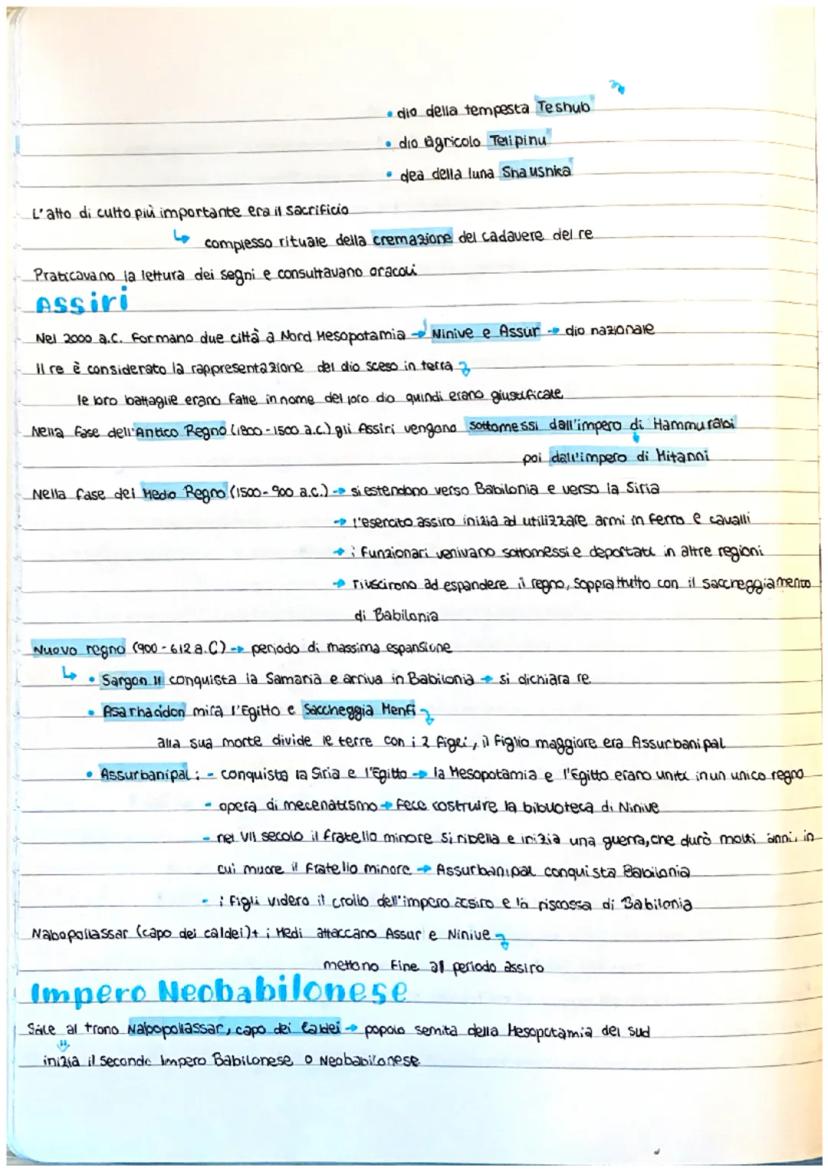 • dio della tempesta Teshub
• dio agricolo Telipinu
• dea della luna Shaushka
L'atto di culto più importante era il sacrificio
↳ complesso rituale della cremazione del cadavere del re
Praticavano la lettura dei segni e consultavano oracoli
Assiri
Nel 2000 a.C. formano due città a Nord Mesopotamia → Ninive e Assur → dio nazionale
Il re è considerato la rappresentazione del dio sceso in terra
le loro battaglie erano fatte in nome del loro dio quindi erano giustificate
Nella fase dell'Antico Regno (1800-1500 a.c.) gli Assiri vengono sottomessi dall'impero di Hammurabi
poi dall'impero di Mitanni
Nella fase del Medio Regno (1500-900 a.c.) → si estendono verso Babilonia e verso la Siria
→ l'esercito assiro inizia ad utilizzare armi in ferro e cavalli
→ i funzionari venivano sottomessi e deportati in altre regioni
→ riuscirono ad espandere il regno, soprattutto con il saccheggiamento
di Babilonia
Nuovo regno (900-612 a.C) → periodo di massima espansione
↳ • Sargon II conquista la Samaria e arriva in Babilonia → si dichiara re
• Asarhaddon mira l'Egitto e Saccheggia Menfi
alla sua morte divide le terre con i 2 figli, il figlio maggiore era Assurbanipal
• Assurbanipal: - conquista la Siria e l'Egitto → la Mesopotamia e l'Egitto erano uniti in un unico regno
- opera di mecenatismo → fece costruire la biblioteca di Ninive
- nel VII secolo il fratello minore si ribella e inizia una guerra, che durò molti anni, in
cui muore il fratello minore → Assurbanipal conquista Babilonia
- i figli videro il crollo dell'impero assiro e la riscossa di Babilonia
Nabopollassar (capo dei caldei) + i Medi attaccano Assur e Ninive
mettono fine al periodo assiro
Impero Neobabilonese
Sale al trono Nabopollassar, capo dei Caldei → popolo semita della Mesopotamia del sud
inizia il secondo Impero Babilonese o Neobabilonese